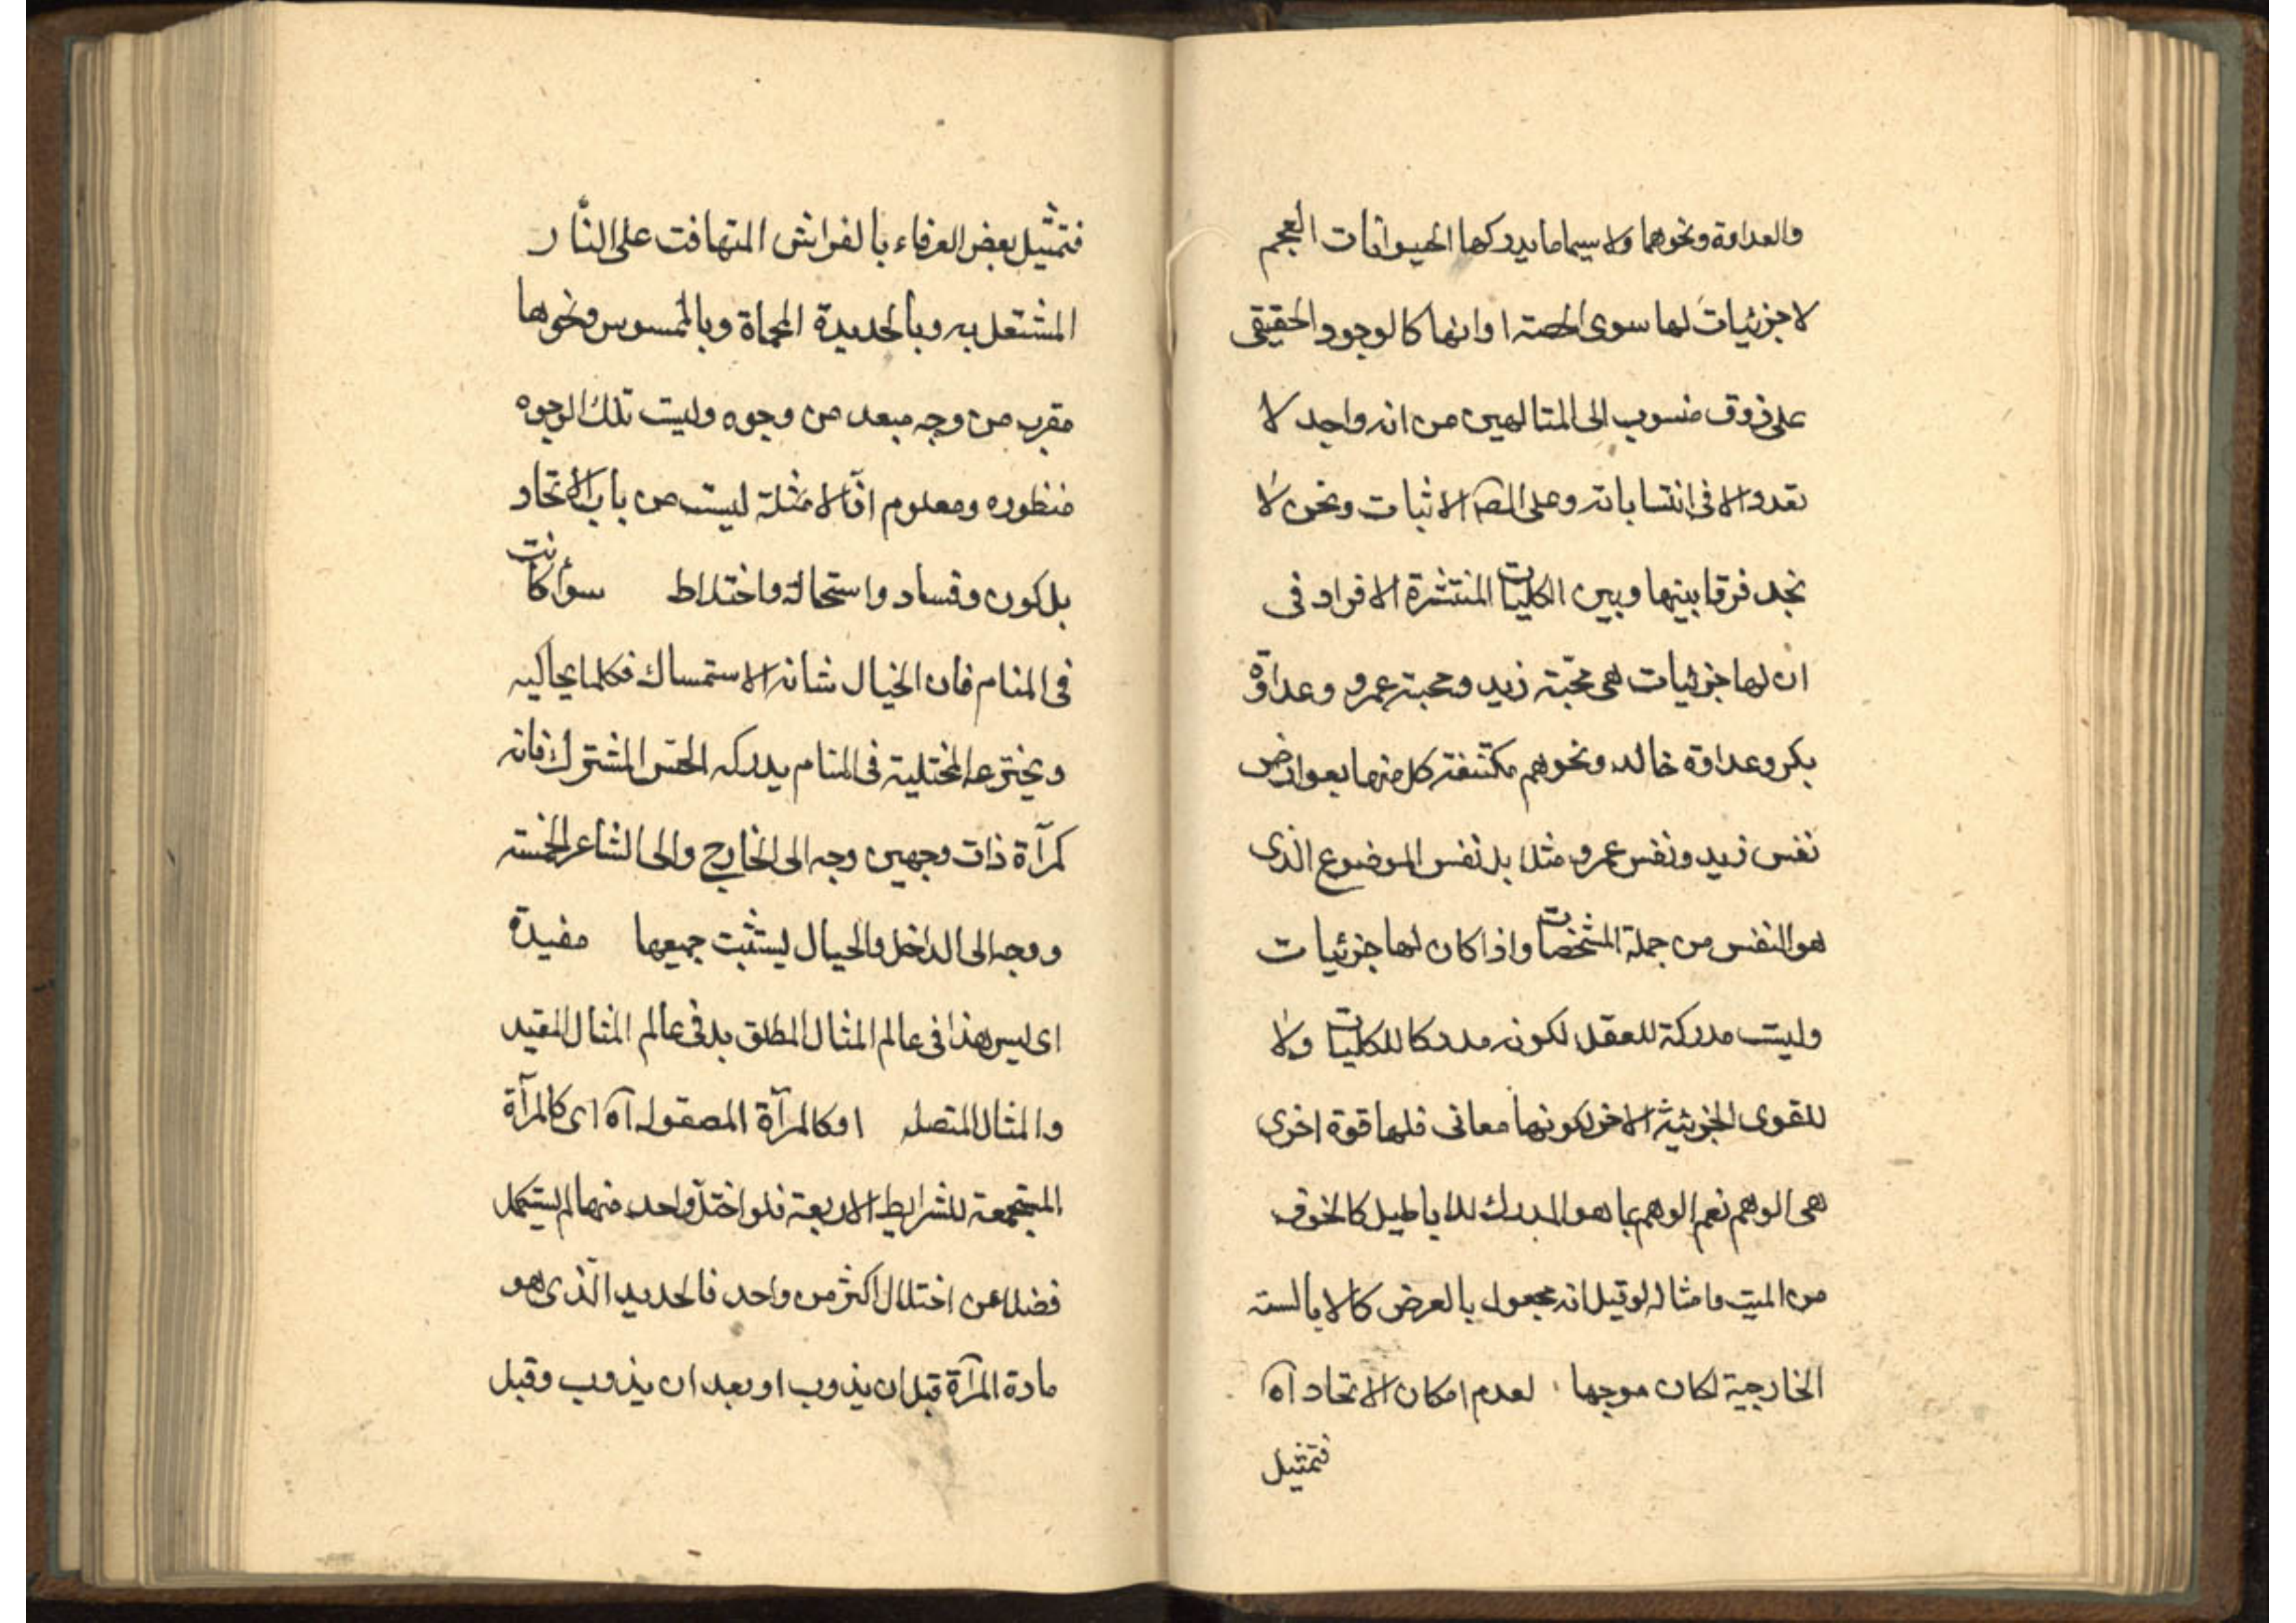 والعداوة ونحوهما ولا سيما ما يدركها الحيوانات العجم
لا جزئيات لها سوى الحصة او انها كالوجود الحقيقى
على ذوق منسوب الى المتالهين من انه واحد لا
تعدد الا فى انتساباته وعلى الاثبات ونحن لا
نجد فرقا بينها وبين الكليات المنتشرة الافراد فى
ان لها جزئيات هى محبّة زيد ومحبة عمرو وعداوة
بكر وعداوة خالد ونحوهم مكتنفة كل منها بعوارض
نفس زيد ونفس عمرو مثلا بل نفس الموضوع الذى
هو النفس من جملة المشخصات واذا كان لها جزئيات
وليست مدركة للعقل لكونه مدركا للكليات ولا
للقوى الجزئية الاخر لكونها معانى فلها قوة اخرى
هى الوهم نعم الوهم بما هو المدرك للاباطيل كالخوف
من الميت وامثاله لو قيل انه مجعول بالعرض كالا بالسته
الخارجية لكان موجها لعدم امكان الاتحاد آه
فتمثيل
فتمثيل بعض العرفاء بالفراش المتهافت على النّار
المشتعل به وبالحديدة المحماة وبالممسوس ونحوها
مقرب من وجه مبعد من وجوه وليست تلك الوجوه
منظوره ومعلوم انّ الامثلة ليست من باب الاتحاد
بل كون وفساد واستحالة واختلاط سواء كانت
فى المنام فان الخيال شانه الاستمساك فكلما يحاكيه
ويخترعه المختلية فى المنام يدركه الحسّ المشترك فانه
كمرآة ذات وجهين وجه الى الخارج والى الشاعر الخمسة
ووجه الى الداخل والخيال ليستثبت جميعها مفيدة
اى ليس هذا فى عالم المثال المطلق بل فى عالم المثال المقيد
والمثال المتصل او كالمرآة المصقوله آه اى كالمرآة
المستجمعة للشرايط الاربعة فلو اختلّ واحد منها لم يستكمل
فضلا عن اختلال اكثر من واحد فالحديد الّذى هو
مادة المرآة قبل ان يذوب او بعد ان يذوب وقبل